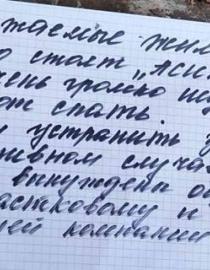 жаемые жил
о стоят „Аси
чень громко
ют спать
устранить
тивном случа
вынужден
астковому и
ей компании